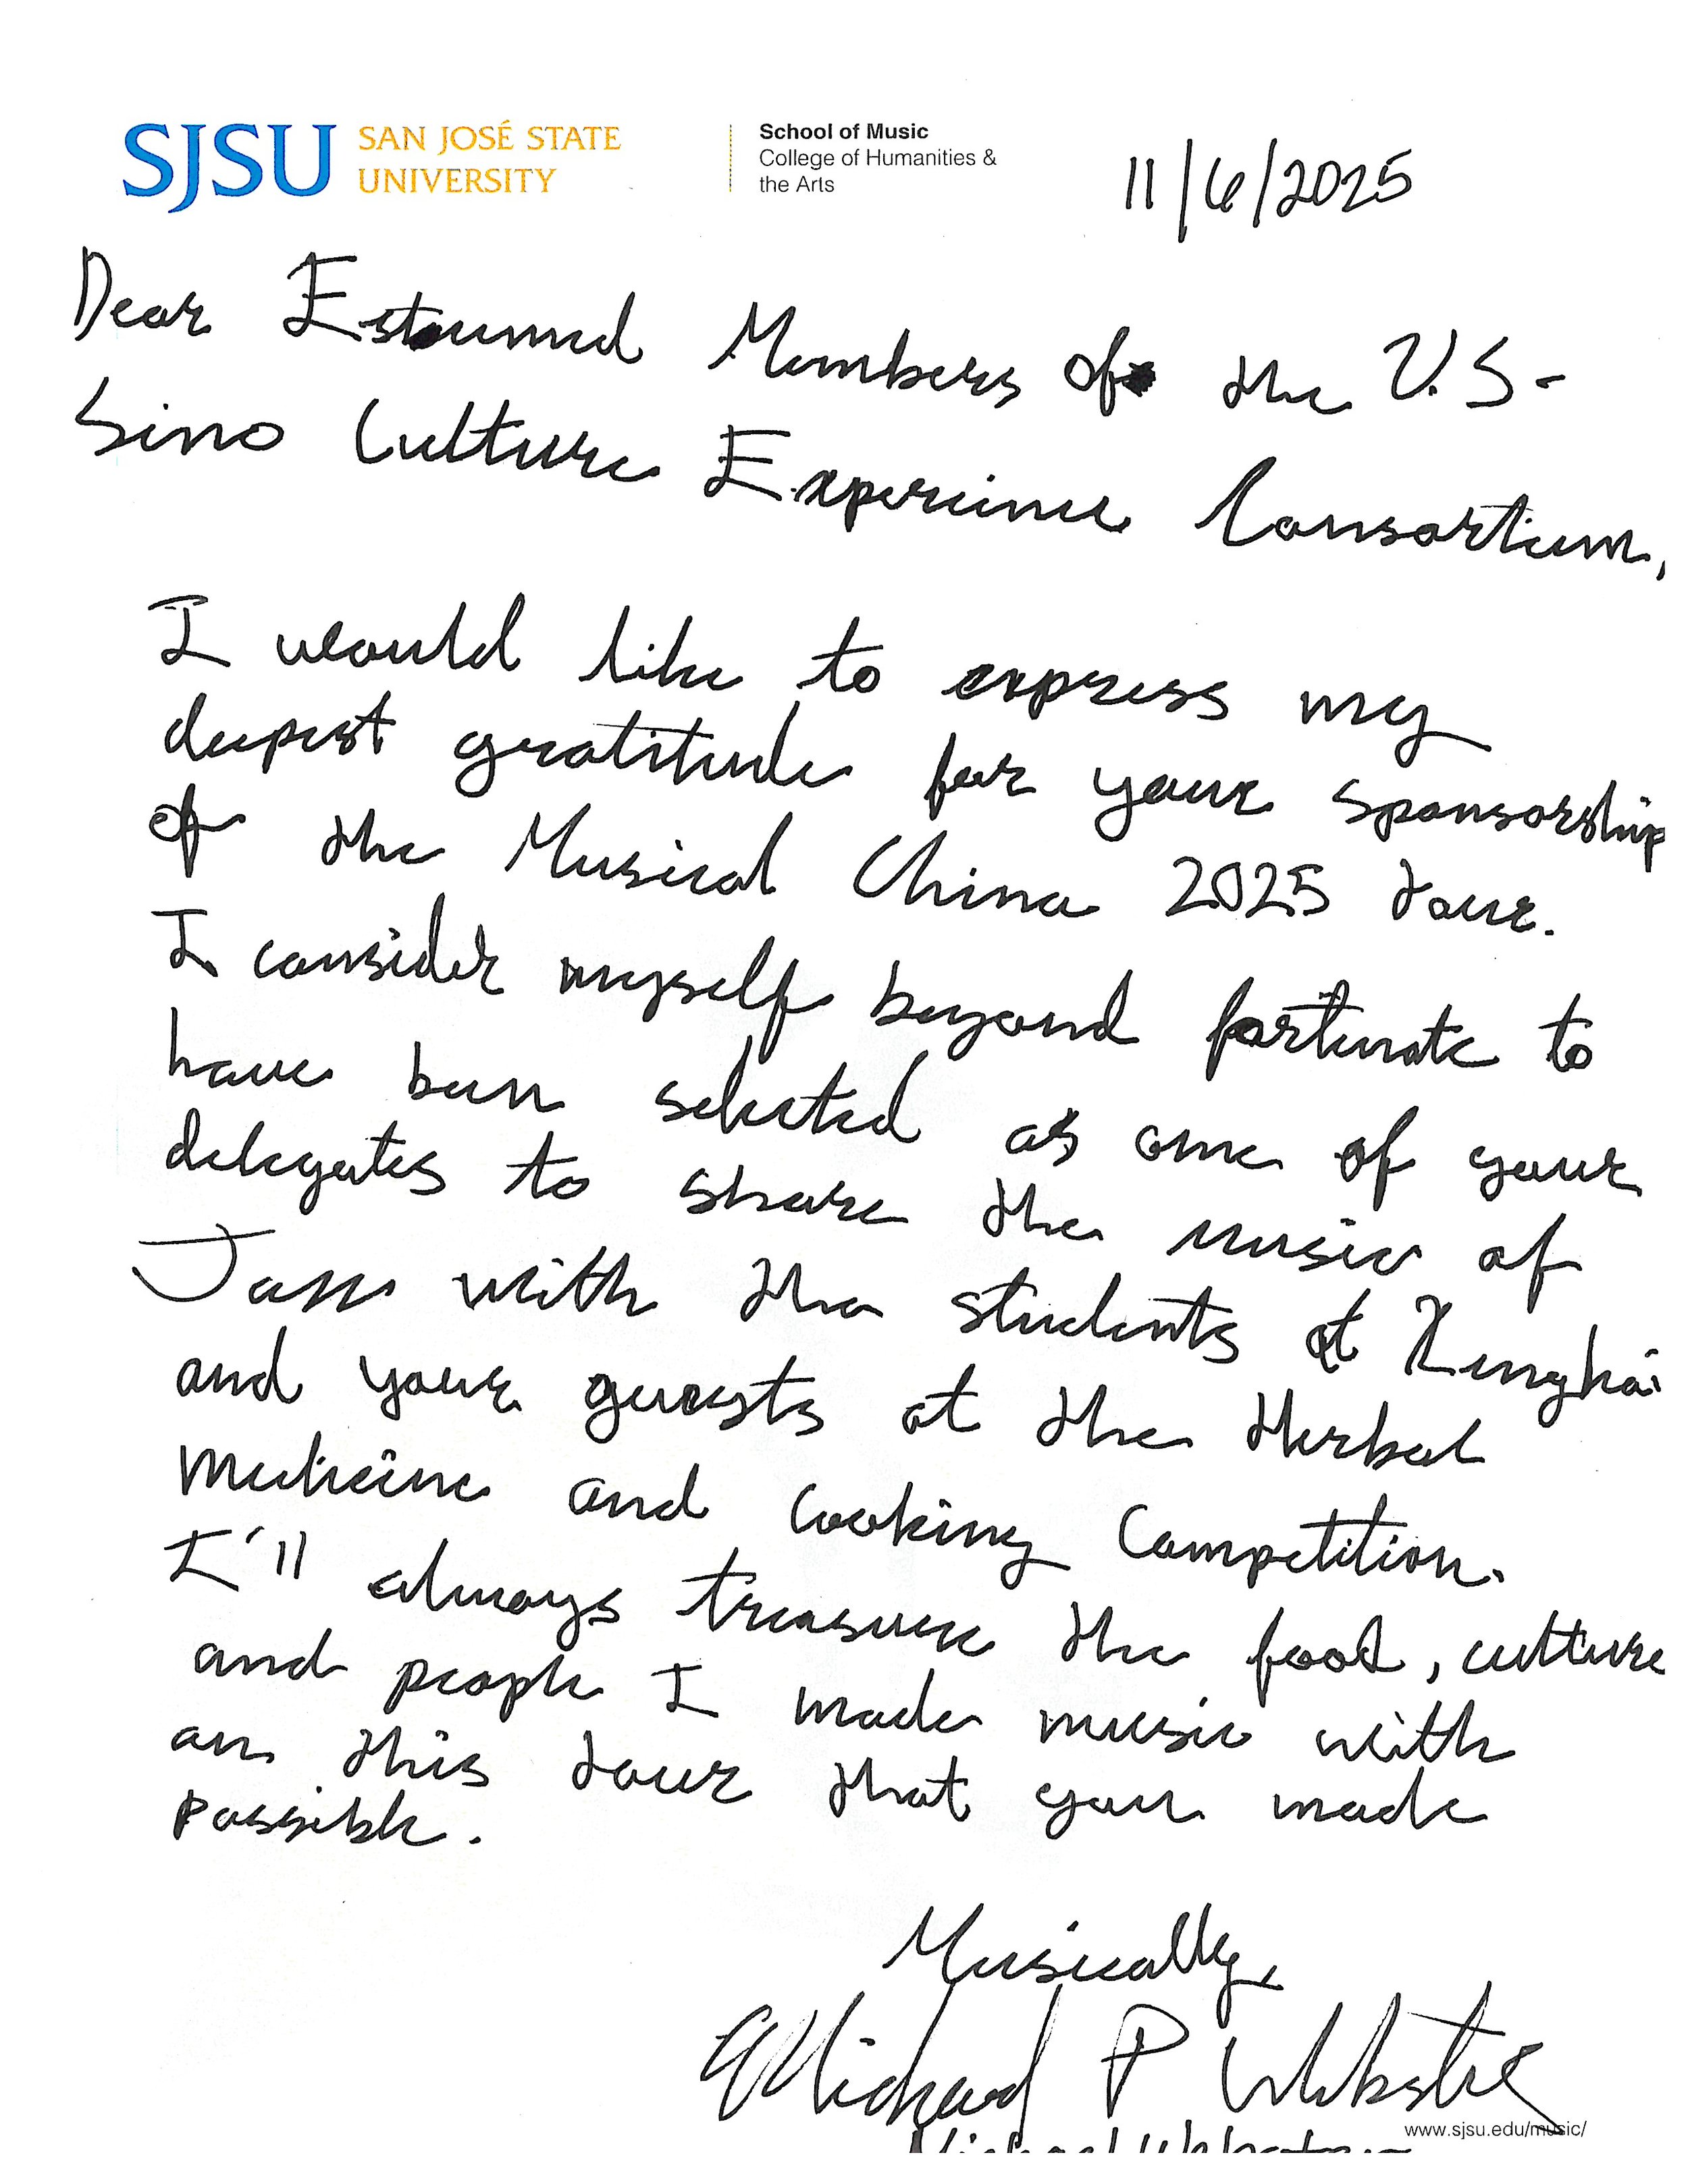 SJSU SAN JOSÉ STATE UNIVERSITY
School of Music
College of Humanities &
the Arts
11/6/2025
Dear Esteemed Members of the U.S-
Sino Culture Experience Consortium,
I would like to express my
deepest gratitude for your sponsorship
of the Musical China 2025 tour.
I consider myself beyond fortunate to
have been selected as one of your
delegates to share the music of
Jazz with the students at Xinghai
and your guests at the Herbal
Medicine and Cooking Competition.
I'll always treasure the food, culture
and people I made music with
on this tour that you made
possible.
Musically,
Michael P Webster
www.sjsu.edu/music/